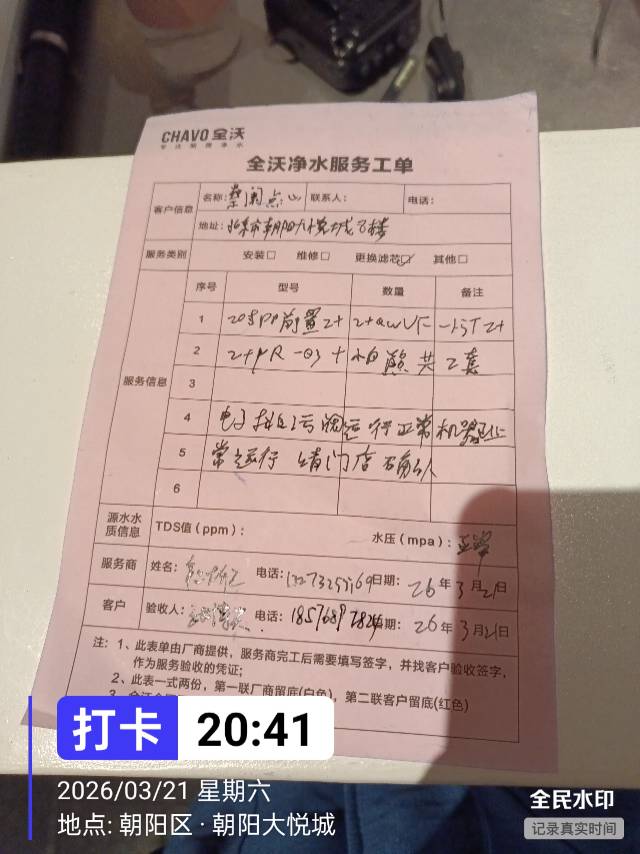 CHAVO 全沃
专注商用净水
全沃净水服务工单
客户信息 名称: 点山 联系人: 电话:
地址: 北京市朝阳大悦城8楼
服务类别 安装□ 维修□ 更换滤芯☑ 其他□
服务信息 序号 型号 数量 备注
1 20寸PP前置2+ 2+
2 共2套
3
4 运行正常机器正
5 常运行 请门店确认
6
源水水质信息 TDS值(ppm): 水压(mpa): 正常
服务商 姓名: 电话: 日期: 26年3月21日
客户 验收人: 电话: 日期: 26年3月21日
注: 1、此表单由厂商提供,服务商完工后需要填写签字,并找客户验收签字,
作为服务验收的凭证;
2、此表一式两份,第一联厂商留底(白色),第二联客户留底(红色)
打卡 20:41
2026/03/21 星期六
地点: 朝阳区·朝阳大悦城
全民水印
记录真实时间